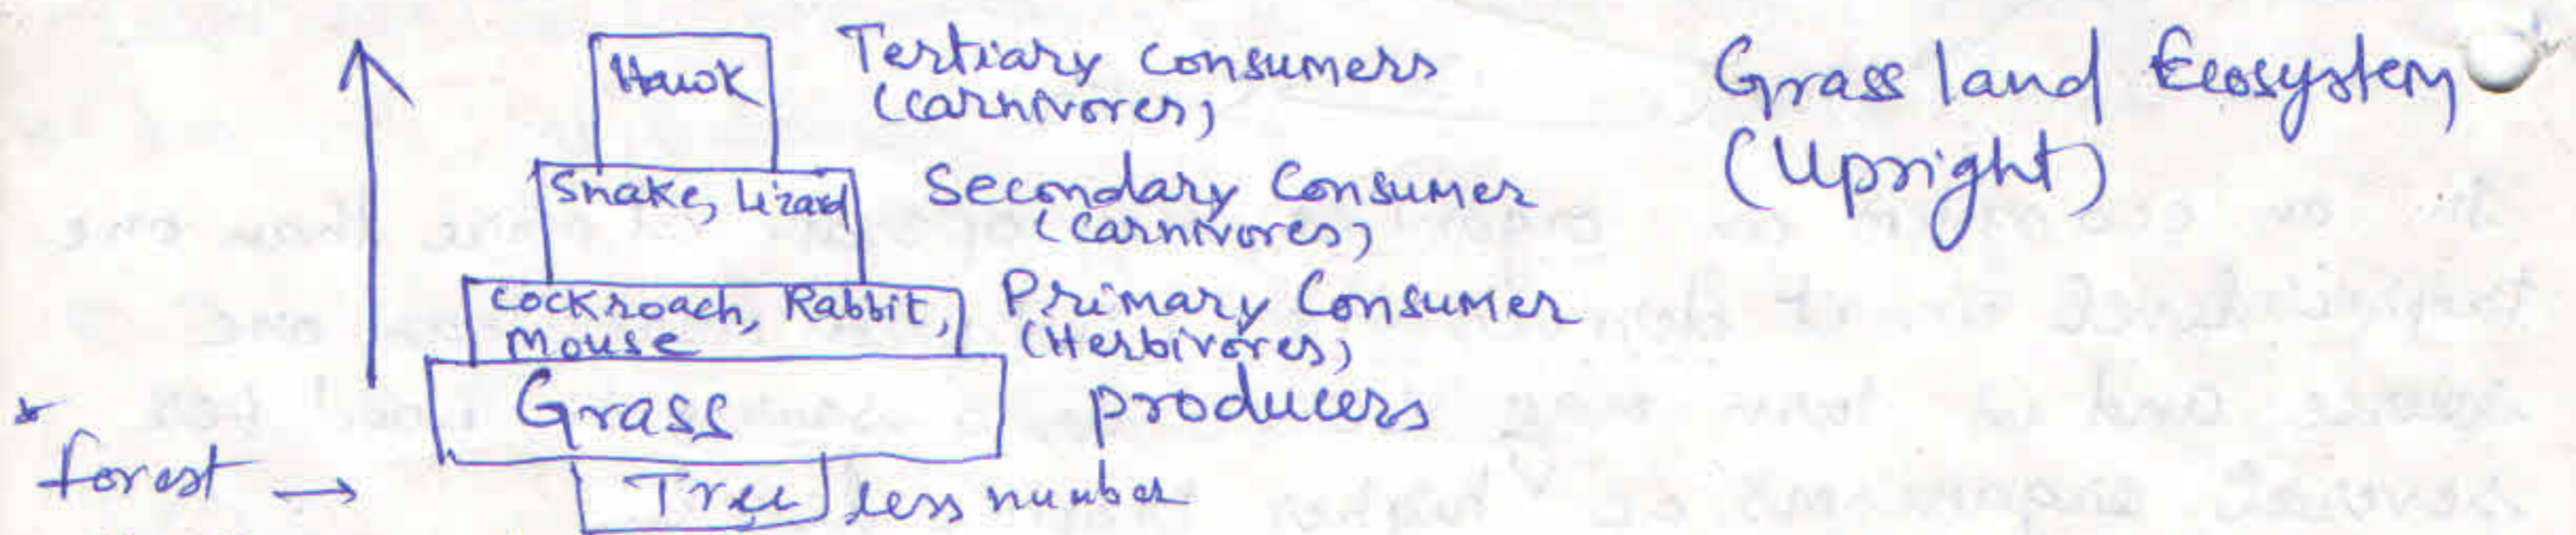 Hawk
Tertiary Consumers
(Carnivores)
Grass land Ecosystem
(Upright)
Snake, Lizard
Secondary Consumer
(Carnivores)
Cockroach, Rabbit,
Mouse
Primary Consumer
(Herbivores)
Grass
producers
* forest →
Tree
less number